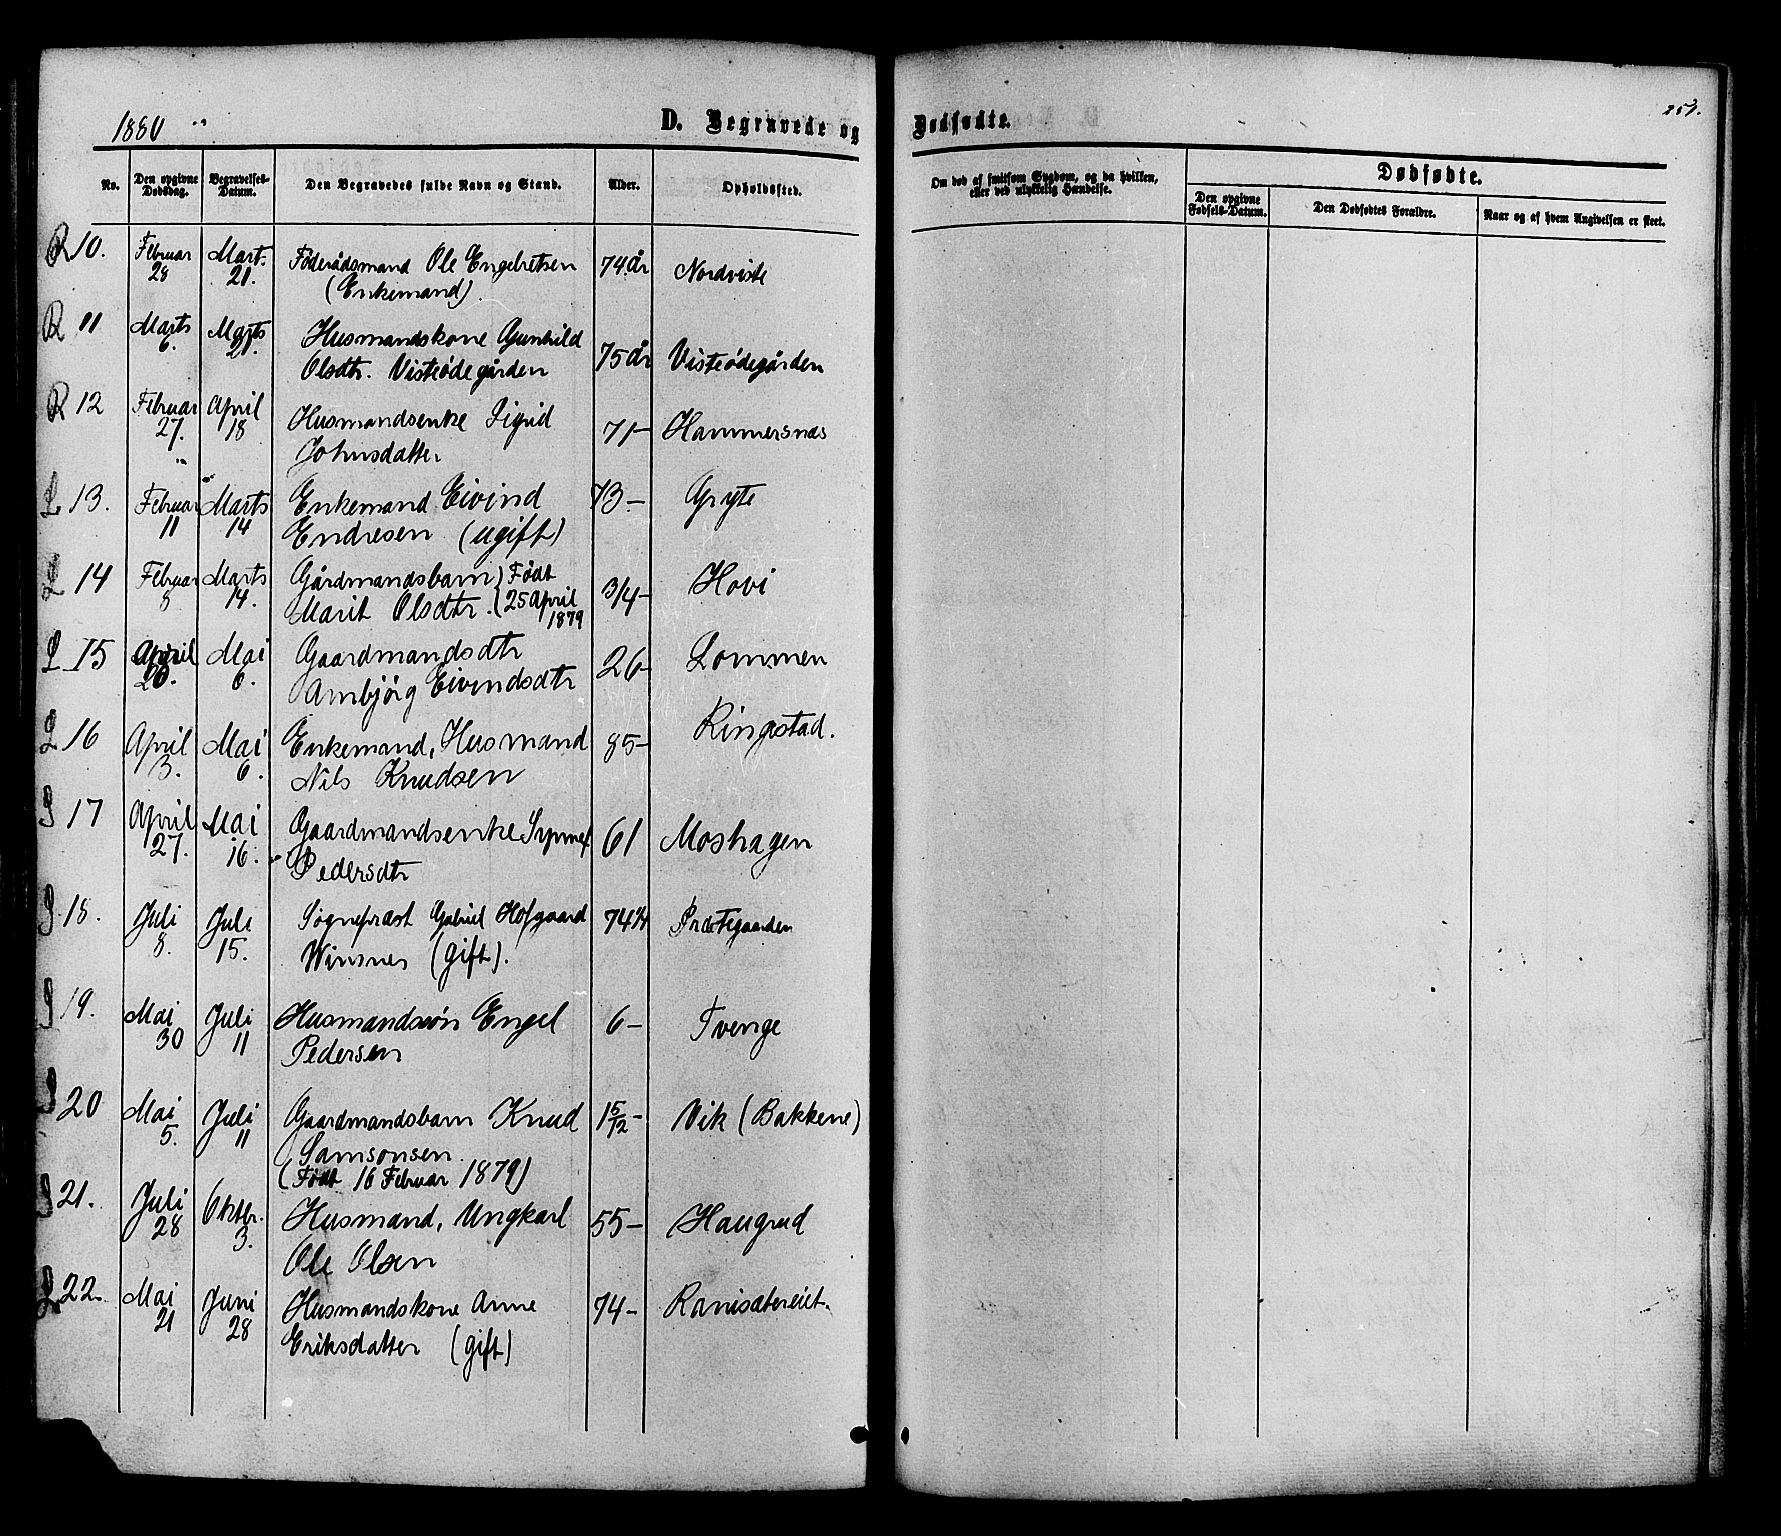 1880
D. Begravede og Dødfødte.
251.
No.
Den opgivne Dødsdag.
Begravelses-Datum.
Den Begravedes fulde Navn og Stand.
Alder.
Opholdssted.
Om død af smitsom Sygdom, og da hvilken,
eller ved ulykkelig Hændelse.
Dødfødte.
Den opgivne Fødsels-Datum.
Den Dødfødtes Forældre.
Naar og af hvem Angivelsen er skeet.
R 10. Februar 28 Mart. 21. Føderådsmand Ole Engebretsen 74 år Nordviste
(Enkemand).
R 11 Marts 6. Marts 21. Husmandskone Gunhild 75 år Visteødegården
Olsdtr. Visteødegården
R 12 Februar 27. April 18 Husmandsenke Sigrid 71- Hammersnæs
Johnsdatter
L 13. Februar 11 Marts 14 Enkemand Eivind 73.- Gryte
Endresen (ugift)
L 14 Februar 8 Marts 14. Gårdmandsbarn Født 3/4- Hovi
Marit Olsdtr. 25 April 1879
L 15 April 20. Mai 6. Gaardmandsdtr 26- Lommen
Ambjörg Eivindsdtr
L 16 April 3. Mai 6. Enkemand, Husmand 85- Ringstad.
Nils Knudsen
S 17 April 27. Mai 16. Gaardmandsenke 61 Moshagen
Pedersdtr
S 18. Juli 8. Juli 15. Sognepræst Gabriel Hofgaard 74 Præstegaarden
Winsnes (gift).
S 19. Mai 30 Juli 11 Husmandssön Engel 6- Tvenge
Pedersen
S 20 Mai 5. Juli 11 Gaardmandsbarn Knud 1 5/12- Vik (Bakkene)
Samsonsen
(Født 16 Februar 1879)
S 21. Juli 28 Oktbr. 3. Husmand, Ungkarl 55- Haugrud
Ole Olsen
L 22. Mai 21 Juni 28 Husmandskone Anne 74- Ranisætereiet.
Eriksdatter (gift)